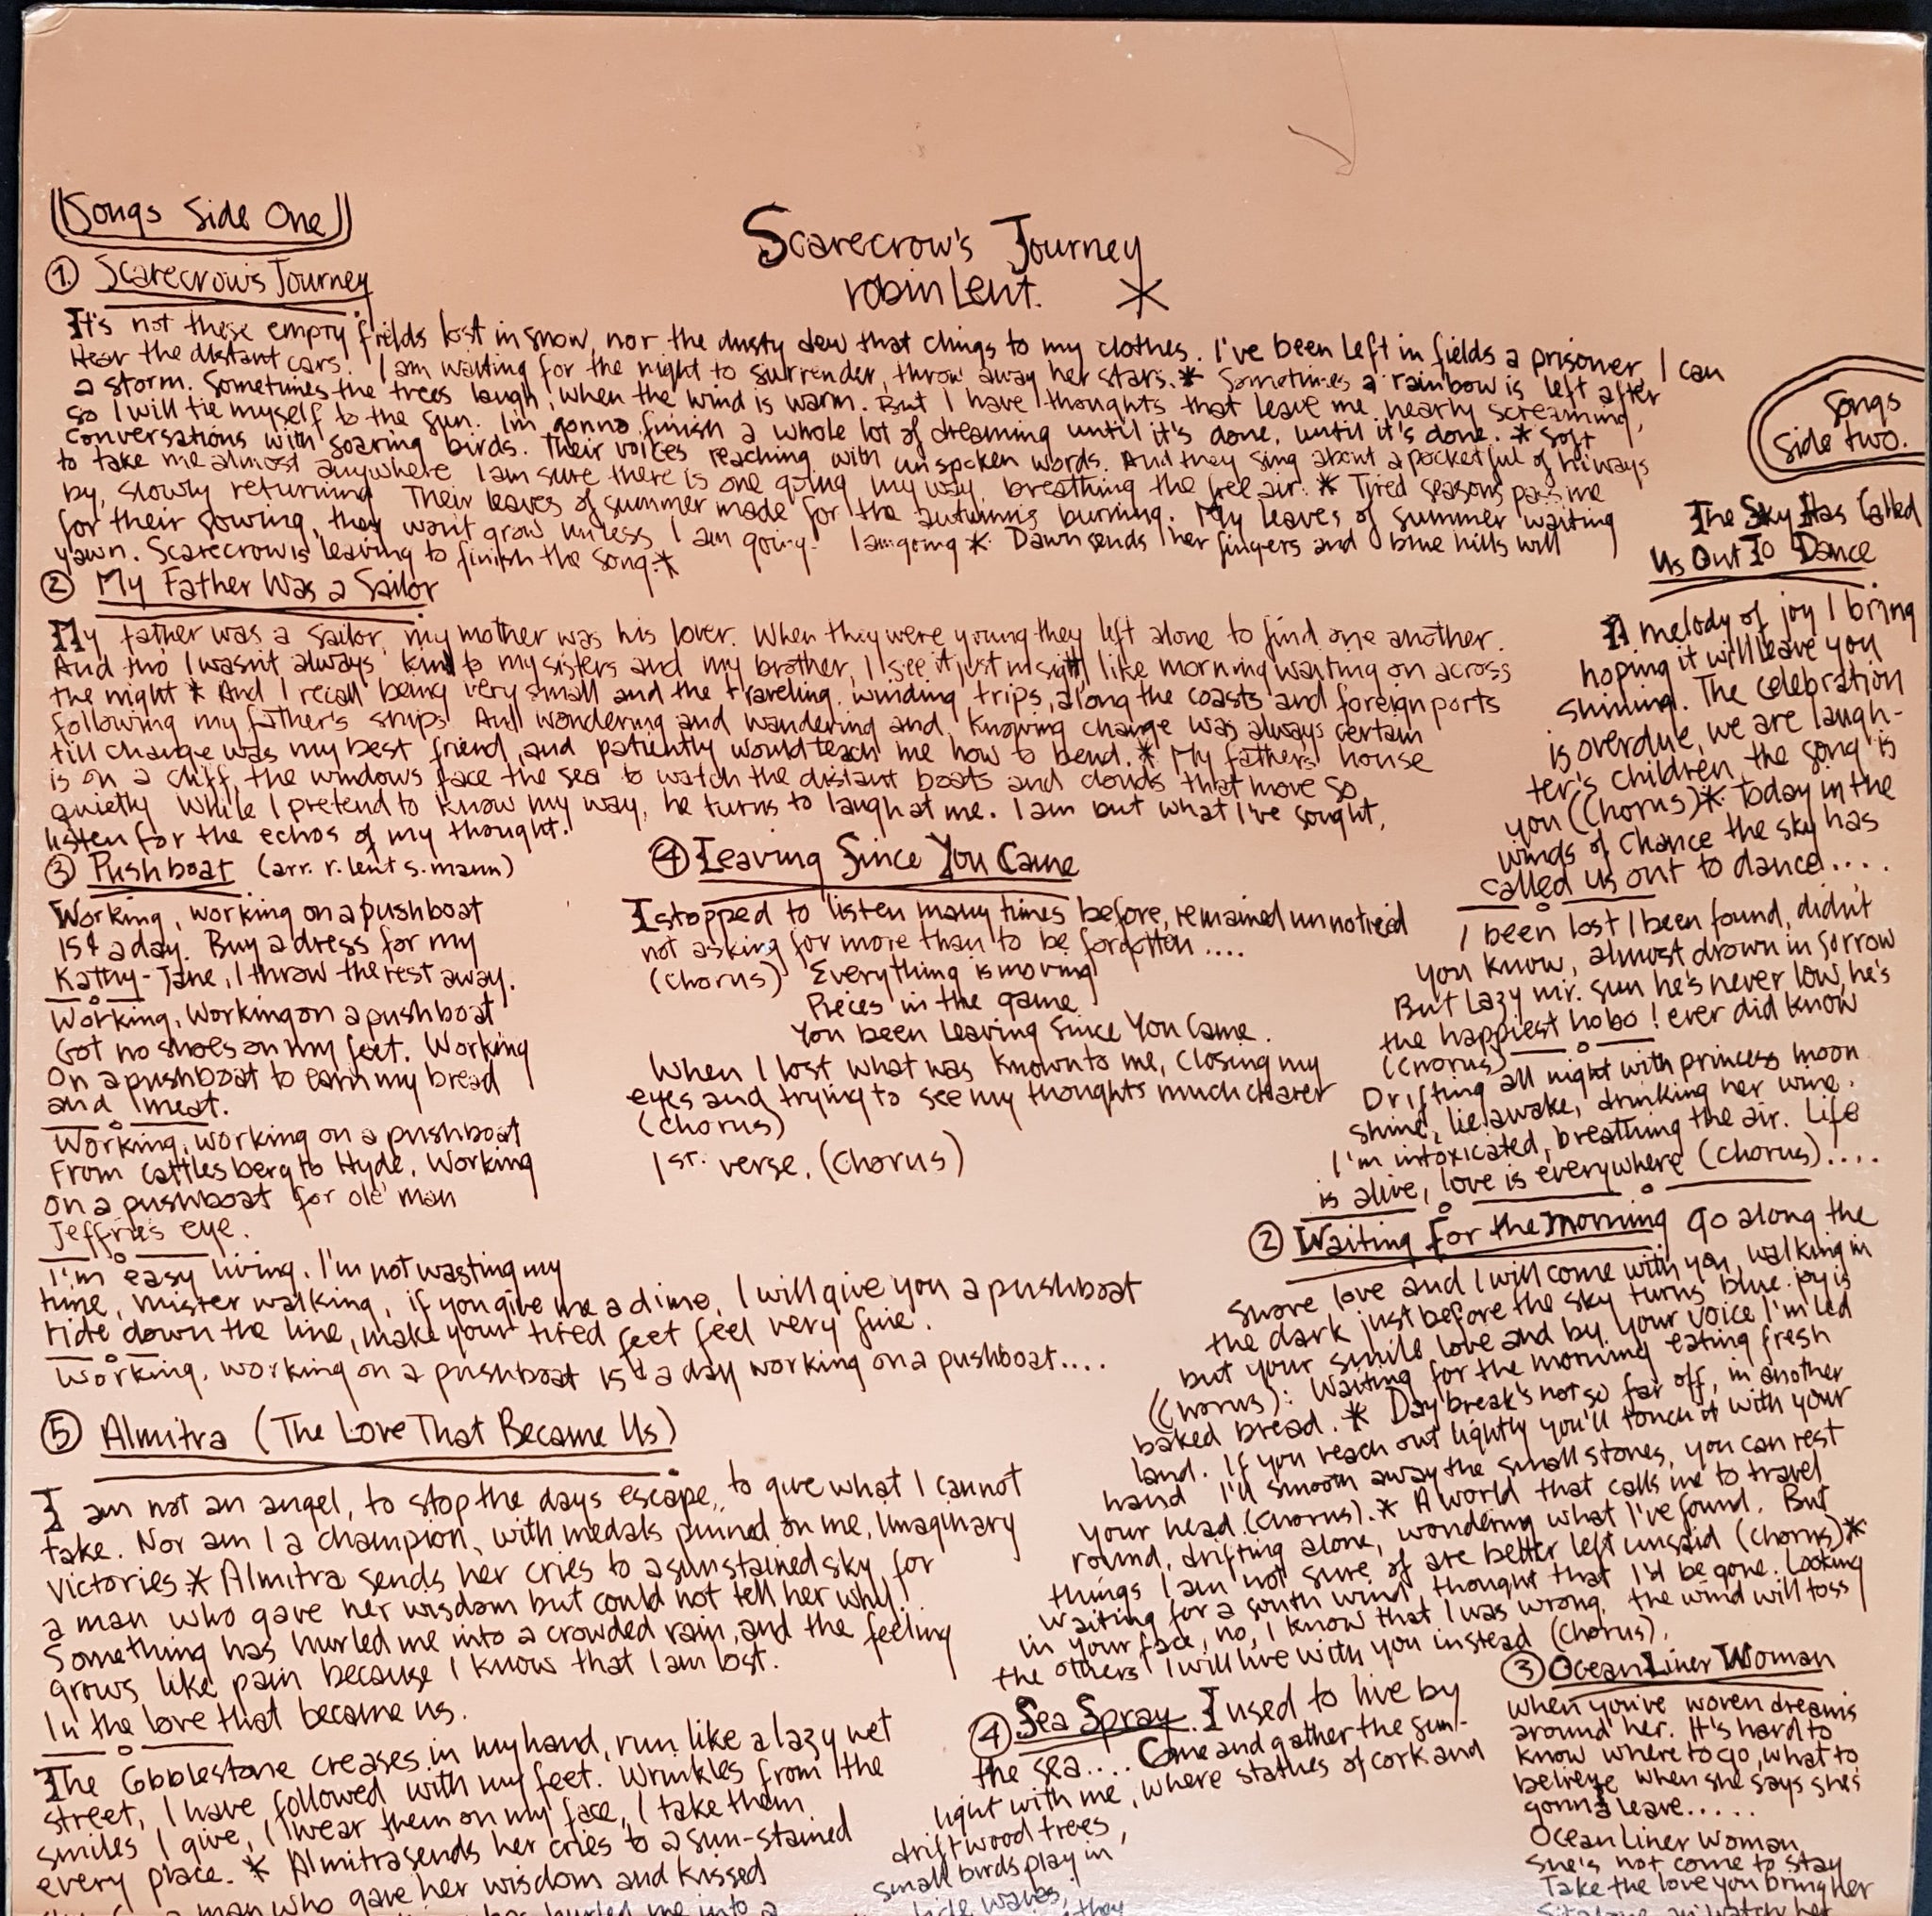 Songs Side One
Scarecrow's Journey
robin lent.
① Scarecrow's Journey
It's not these empty fields lost in snow, nor the dusty dew that clings to my clothes. I've been left in fields a prisoner, I can
Hear the distant cars. I am waiting for the night to surrender, throw away her stars. * Sometimes a rainbow is left after
a storm. Sometimes the trees laugh, when the wind is warm. But I have thoughts that leave me nearly screaming,
so I will tie myself to the sun. I'm gonna finish a whole lot of dreaming until it's done, until it's done. * Soft
conversations with soaring birds. Their voices reaching with unspoken words. And they sing about a pocketful of hiways
to take me almost anywhere I am sure there is one going my way, breathing the free air. * Tired seasons pass me
by, slowly returning Their leaves of summer made for the autumns burning. My leaves of summer waiting
for their sowing, they won't grow unless I am going. I am going *. Dawn sends her fingers and blue hills will
yawn. Scarecrow is leaving to finish the song. *
② My Father Was a Sailor
My father was a sailor, my mother was his lover. When they were young they left alone to find one another.
And tho' I wasn't always kind to my sisters and my brother, I see it just in sight, like morning waiting on across
the night * And I recall being very small and the traveling, winding trips, along the coasts and foreign ports
following my father's ships. And wondering and wandering and, knowing change was always certain
till change was my best friend, and patiently would teach me how to bend. * My fathers' house
is on a cliff, the windows face the sea to watch the distant boats and clouds that move so
quietly While I pretend to know my way, he turns to laugh at me. I am but what I've sought,
listen for the echos of my thought.
③ Pushboat (arr. r. lent s. mann)
Working, working on a pushboat
15¢ a day. Buy a dress for my
Kathy-Jane, I throw the rest away.
Working, Working on a pushboat
Got no shoes on my feet. Working
On a pushboat to earn my bread
and meat.
Working, working on a pushboat
From Cattlesberg to Hyde, Working
on a pushboat for ole' man
Jeffrie's eye.
I'm easy living. I'm not wasting my
time, mister walking, if you give me a dime, I will give you a pushboat
ride down the line, make your tired feet feel very fine.
Working, working on a pushboat 15¢ a day working on a pushboat....
④ Leaving Since You Came
I stopped to listen many times before, remained unnoticed
not asking for more than to be forgotten....
(chorus) Everything is moving
Pieces in the game
You been Leaving Since You Came.
When I lost what was known to me, closing my
eyes and trying to see my thoughts much clearer
(chorus)
1st. verse, (Chorus)
⑤ Almitra (The Love That Became Us)
I am not an angel, to stop the days escape, to give what I cannot
take. Nor am I a champion, with medals pinned on me, Imaginary
victories * Almitra sends her cries to a sunstained sky, for
a man who gave her wisdom but could not tell her why!
Something has hurled me into a crowded rain, and the feeling
grows like pain because I know that I am lost.
In the love that became us.
The Cobblestone creases in my hand, run like a lazy net
street, I have followed with my feet. Wrinkles from the
smiles I give, I wear them on my face, I take them
every place. * Almitra sends her cries to a sun-stained
a man who gave her wisdom and kissed
hurled me into a
Songs
Side two.
The Sky Has Called
Us Out To Dance
A melody of joy I bring
hoping it will leave you
shining. The celebration
is overdue, we are laugh-
ter's children, the song is
you (Chorus) * Today in the
winds of chance the sky has
called us out to dance....
I been lost I been found, didn't
you know, almost drown in sorrow
But Lazy mr. sun he's never low, he's
the happiest hobo I ever did know
(Chorus)
Drifting all night with princess moon
shine, lie awake, drinking her wine.
I'm intoxicated, breathing the air. Life
is alive, love is everywhere (Chorus)....
② Waiting For the Morning Go along the
shore, love and I will come with you, walking in
the dark just before the sky turns blue. Joy is
but your smile love and by your voice I'm led
(Chorus): Waiting for the morning eating fresh
baked bread. * Day break's not so far off, in another
land. If you reach out lightly you'll touch it with your
hand I'll smooth away the small stones, you can rest
your head. (Chorus). * A world that calls me to travel
round, drifting alone, wondering what I've found. But
things I am not sure of are better left unsaid (Chorus) *
Waiting for a south wind, thought that I'd be gone. Looking
in your face, no, I know that I was wrong. the wind will toss
the others I will live with you instead (Chorus).
③ Ocean Liner Woman
When you've woven dreams
around her. It's hard to
know where to go, what to
believe when she says she's
gonna leave.....
Ocean Liner Woman
She's not come to stay
Take the love you bring her
④ Sea Spray. I used to live by
the sea.... Come and gather the sun-
light with me, where statues of cork and
driftwood trees,
small birds play in
waves,
they